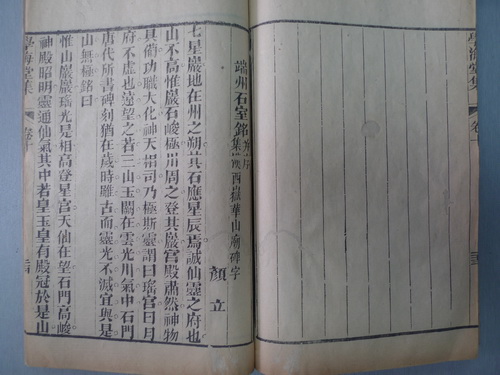 學海堂集 卷十
端州石室銘 并序 集漢西嶽華山廟碑字
顏立
七星巖地在州之朔其石應星辰焉誠仙靈之府也
山不高惟巖石峻極周之登其巖宮殿肅然神物
具備功職大化神天司乃極斯靈謂曰瑤宮日月
府不虛也遠望之若三山玉闕在雲光川氣中石門
唐代所書碑刻猶在歲時雖古而靈光不滅宜與是
山無極銘曰
惟山巖巖瑤光是相高登星宮天仙在望石門高峻
神殿昭明靈通仙氣其中若皇玉皇有殿冠於是山
學海堂集 卷十